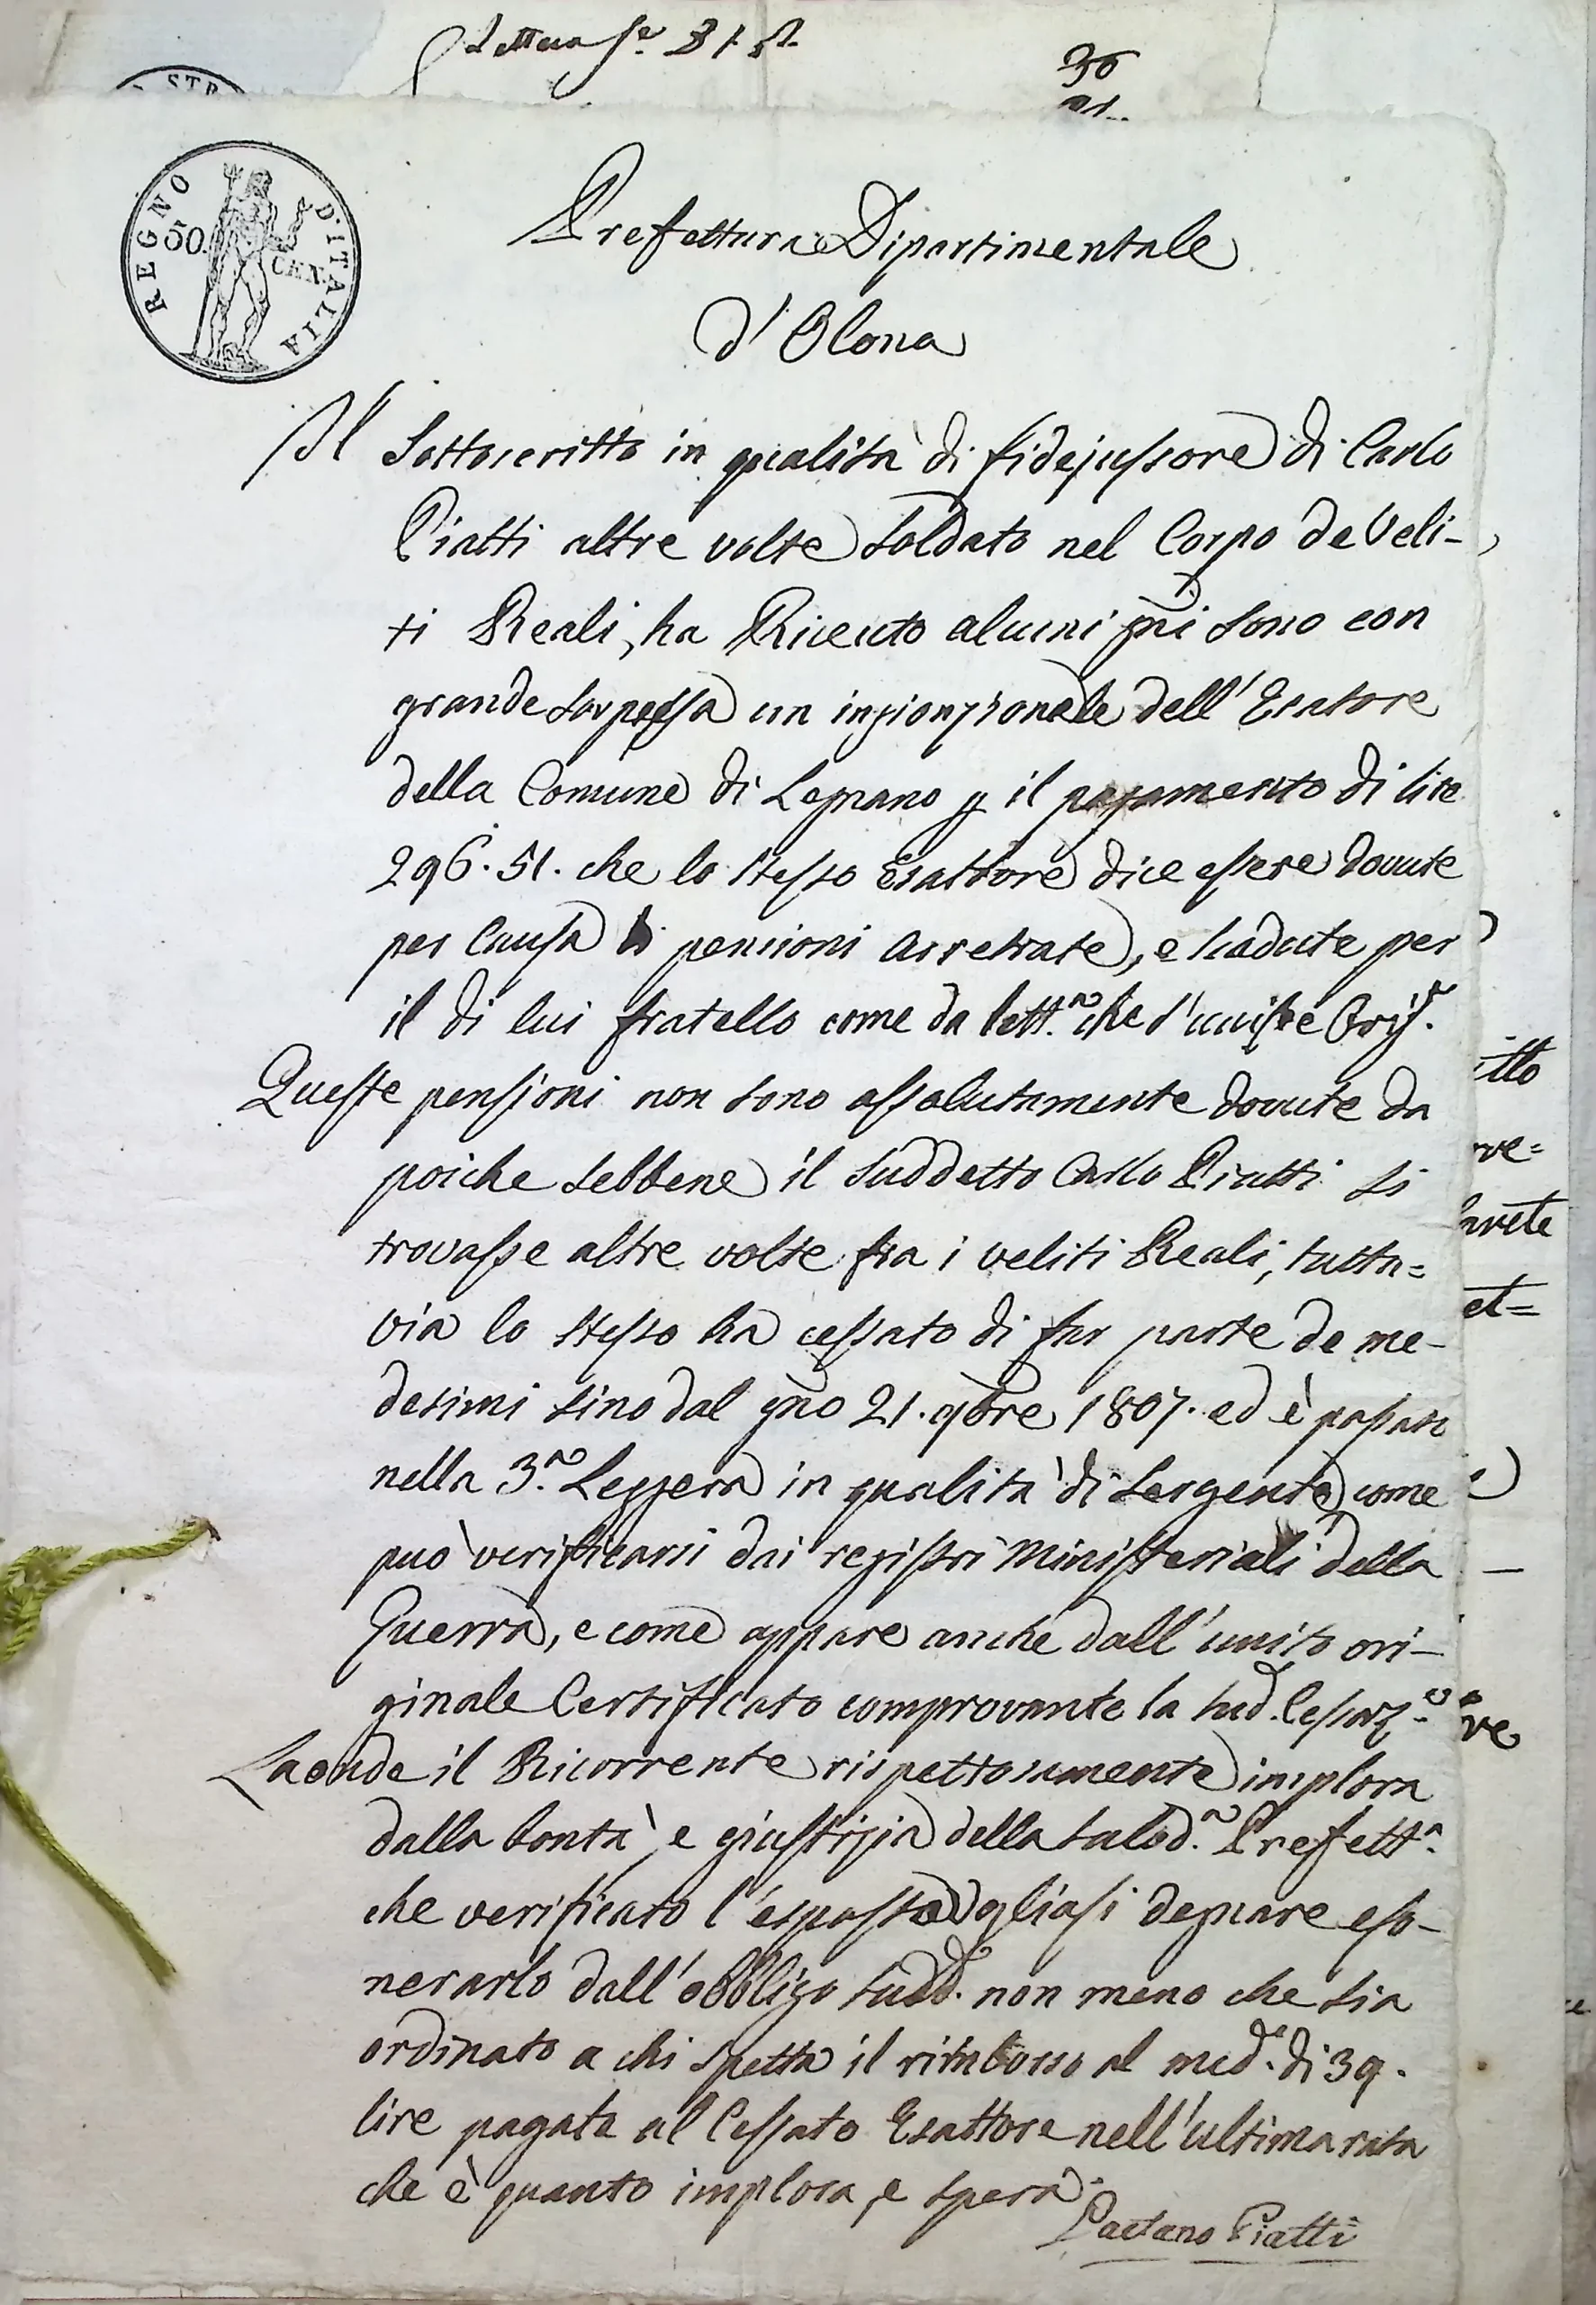 Lettera
36
STR
REGNO D'ITALIA
50. CEN.
Prefettura Dipartimentale
d'Olona
Il Sottoscritto in qualità di fidejussore di Carlo
Piatti altre volte Soldato nel Corpo de Veli-
ti Reali, ha Ricevuto alcuni gni sono con
grande sorpresa un ingionzionale dell'Esatore
della Comune di Legnano p il pagamento di lire
296.51. che lo stesso Esattore dice essere dovute
per Causa di pensioni arretrate, e scadute per
il di lui fratello come da lett.a che s'unisce Orig.
Queste pensioni non sono assolutamente dovute da
poiche sebbene il suddetto Carlo Piatti si
trovasse altre volte fra i veliti Reali, tutta=
via lo stesso ha cessato di far parte de me-
desimi sino dal gno 21. 9bre 1807. ed è passato
nella 3.a Leggera in qualità di Sergente come
può verificarsi dai registri Ministeriali della
Guerra, e come appare anche dall'unito ori-
ginale Certificato comprovante la sud. Cessaz.e
Laonde il Ricorrente rispettosamente implora
dalla bontà, e giustizia della salod.a Prefett.a
che verificato l'esposto Vogliasi degnare eso-
nerarlo dall'obbligo sudd.o non meno che sia
ordinato a chi spetta il rimborso al med.o di 39.
lire pagate al Cessato Esattore nell'ultima rata
che è quanto implora, e spera.
Gaetano Piatti
itto
ve=
et=
ve